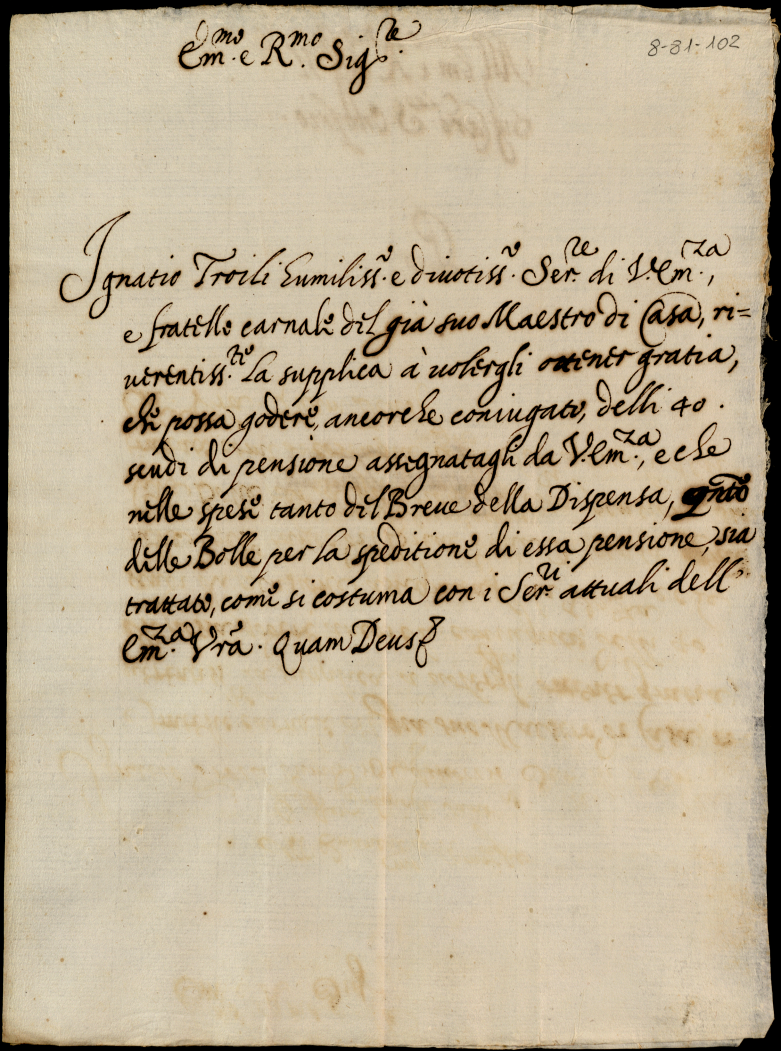 8-81-102
Em.mo e R.mo Sig.re
Ignatio Troili humiliss.o e divotiss.o Ser.re di V. Em.za,
e fratello carnale del già suo Maestro di Casa, ri=
verentiss.te la supplica à volergli ottener gratia,
che possa godere, ancorche coniugato, delli 40.
scudi di pensione assegnatagli da V. Em.za, e che
nelle spese tanto del Breve della Dispensa, qnto
delle Bolle per la speditione di essa pensione, sia
trattato, come si costuma con i Ser.ri attuali dell'
Em.za Vrã. Quam Deus